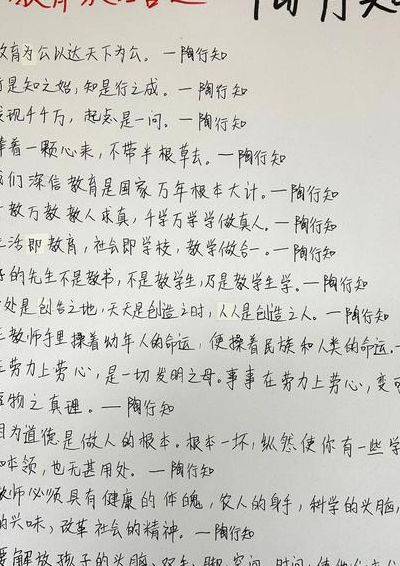 教育为公以达天下为公。—陶行知
是知之始,知是行之成。—陶行知
发现千千万,起点是一问。—陶行知
捧着一颗心来,不带半根草去。—陶行知
我们深信教育是国家万年根本大计。—陶行知
教万教教人求真,千学万学学做真人。—陶行知
生活即教育,社会即学校,教学做合一。—陶行知
的先生不是教书,不是教学生,乃是教学生学。—陶行知
处是创告之地,天天是创造之时,人人是创造之人。—陶行知
教师手里操着幼年人的命运,便操着民族和人类的命运。—
劳力上劳心,是一切发明之母。事事在劳力上劳心,变可
物之真理。—陶行知
因为道德是做人的根本。根本一坏,纵然使你有一些学
和本领,也无甚用处。—陶行知
教师必须具有健康的体魄,农人的身手,科学的头脑,
的兴味,改革社会的精神。—陶行知
要解放孩子的头脑、双手、脚、空间、时间,使他们